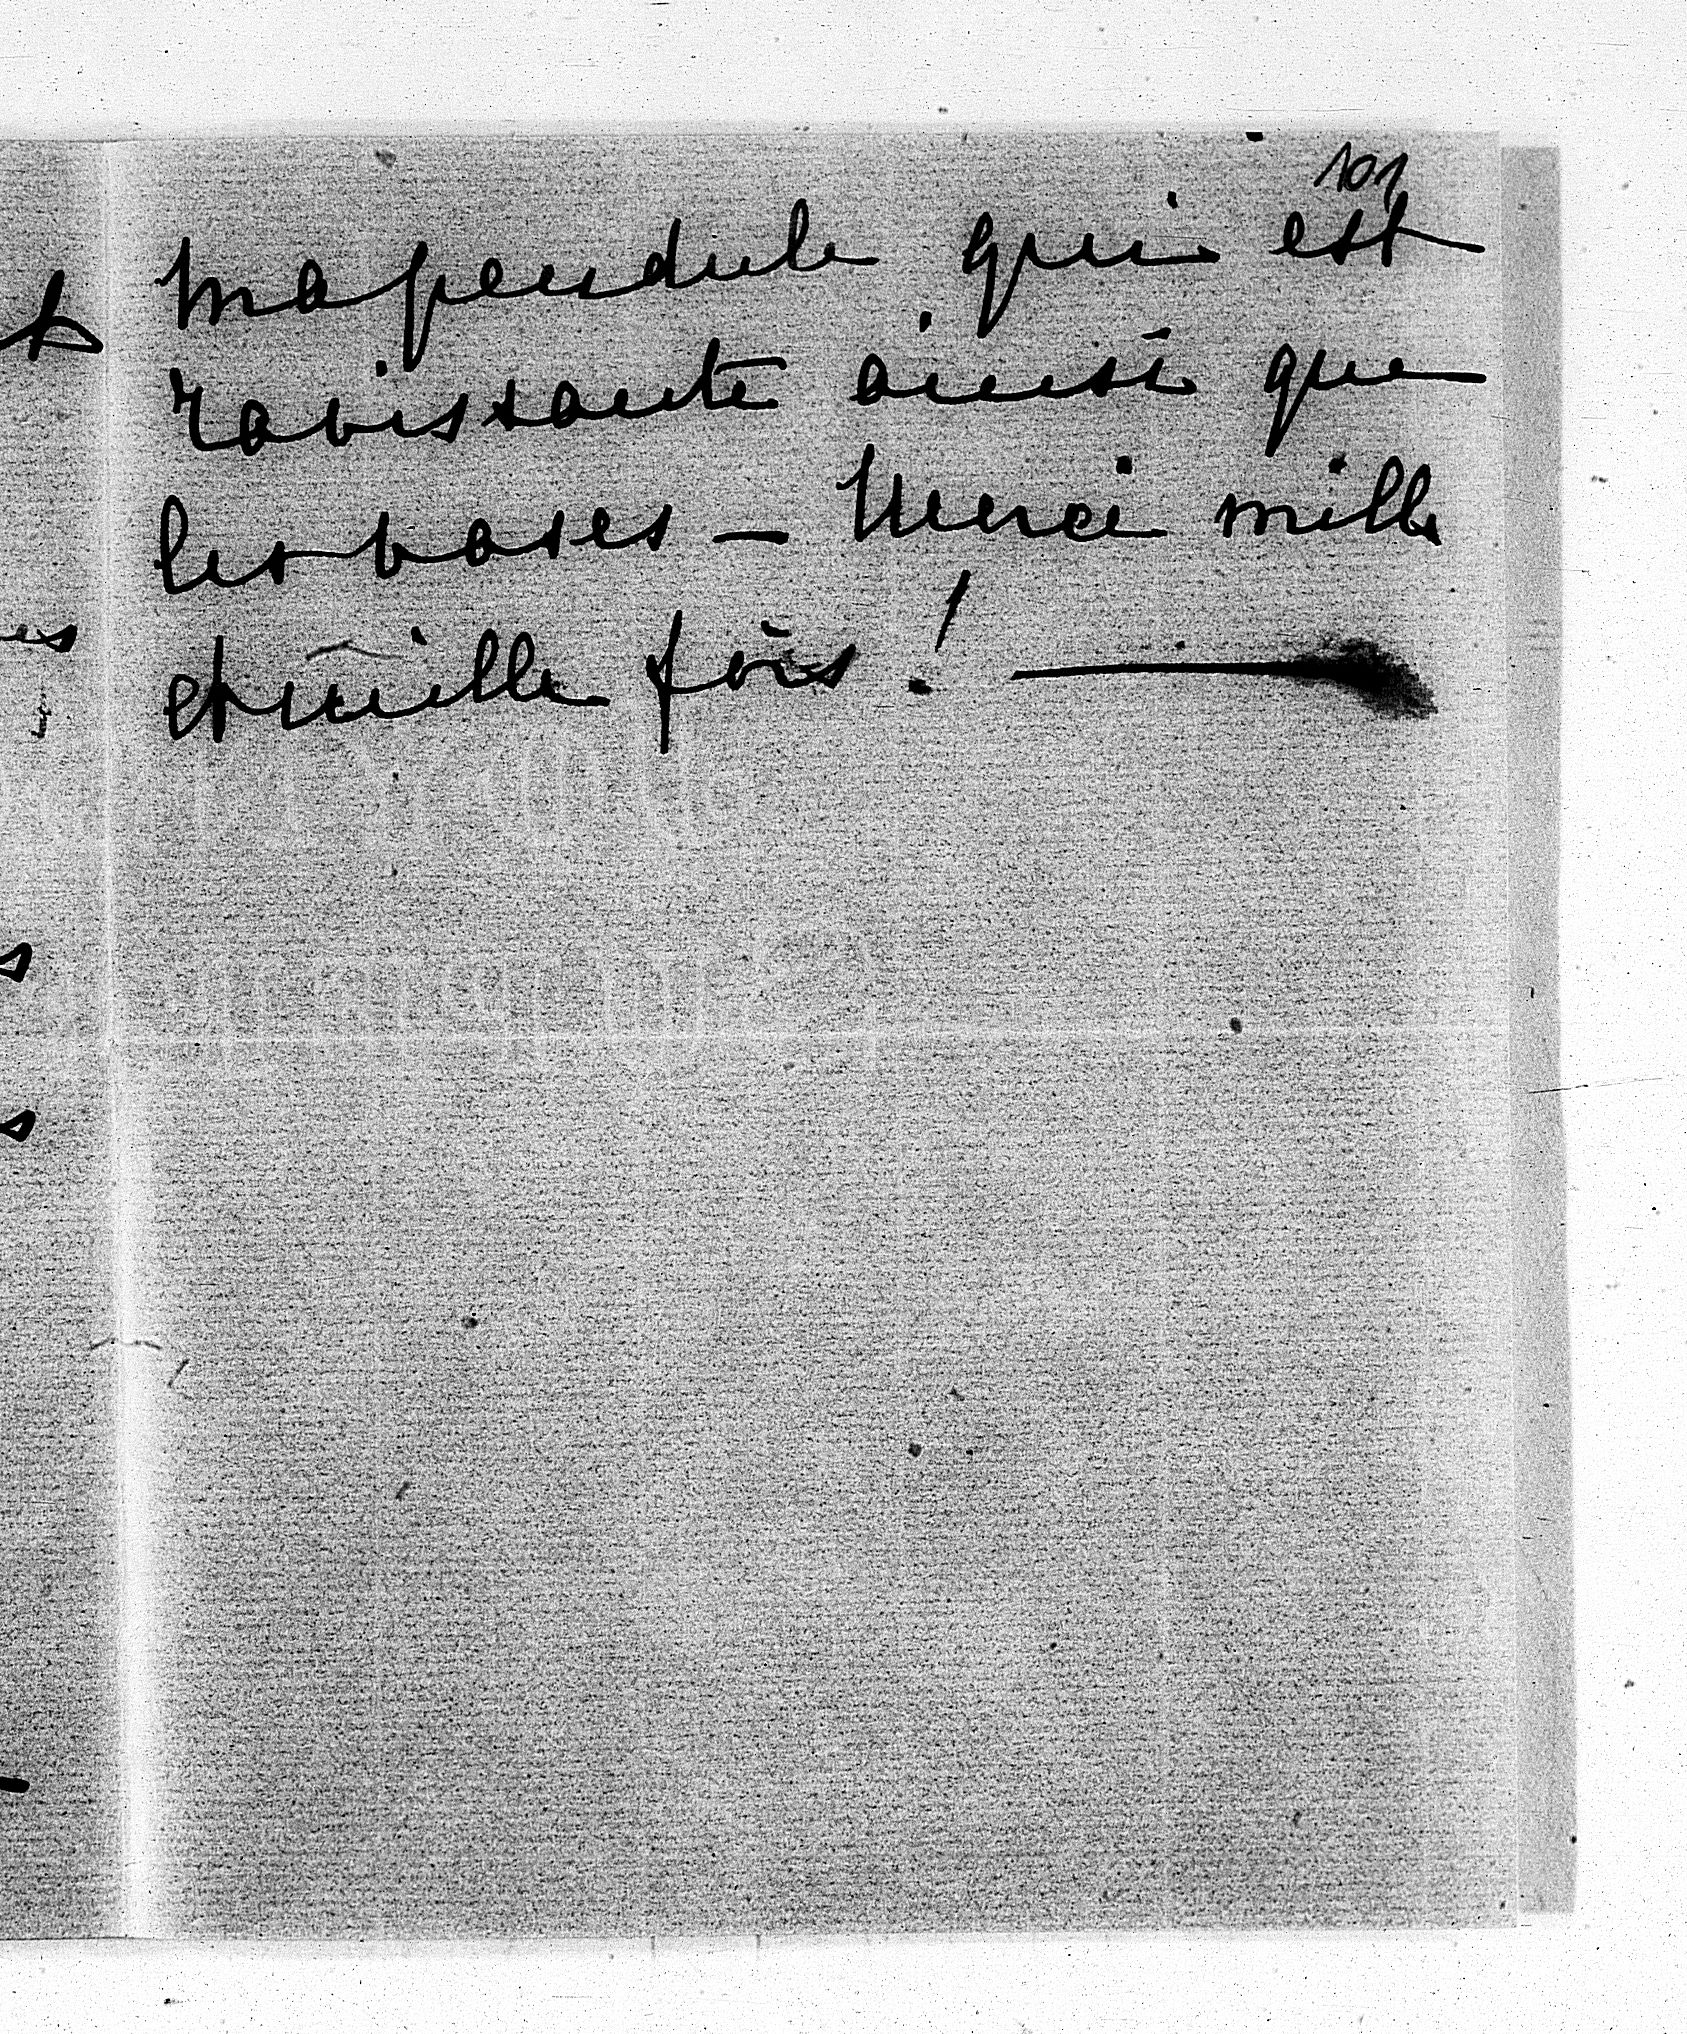 101
ma pendule qui est
ravissante ainsi que
les vases – Merci mille
et mille fois ! —